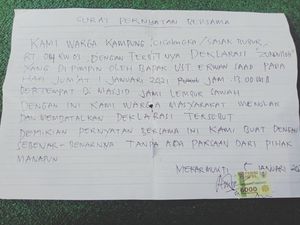 SURAT PERNYATAAN BERSAMA
KAMI WARGA KAMPUNG
RT 04 RW 03 DENGAN TERBITNYA DEKLARASI
YANG DI PIMPIN OLEH BAPAK UST ERWAN SAAD PADA
HARI JUM'AT 1 JANUARI 2021 JAM 13.00 WIB
BERTEMPAT DI MASJID JAMI LEMBUR SAWAH
DENGAN INI KAMI WARGA MASYARAKAT MENOLAK
DAN MEMBATALKAN DEKLARASI TERSEBUT
DEMIKIAN PERNYATAAN BERSAMA INI KAMI BUAT DENGAN
SEBENAR-BENARNYA TANPA ADA PAKSAAN DARI PIHAK
MANAPUN
MEKARMUKTI 5 JANUARI
6000